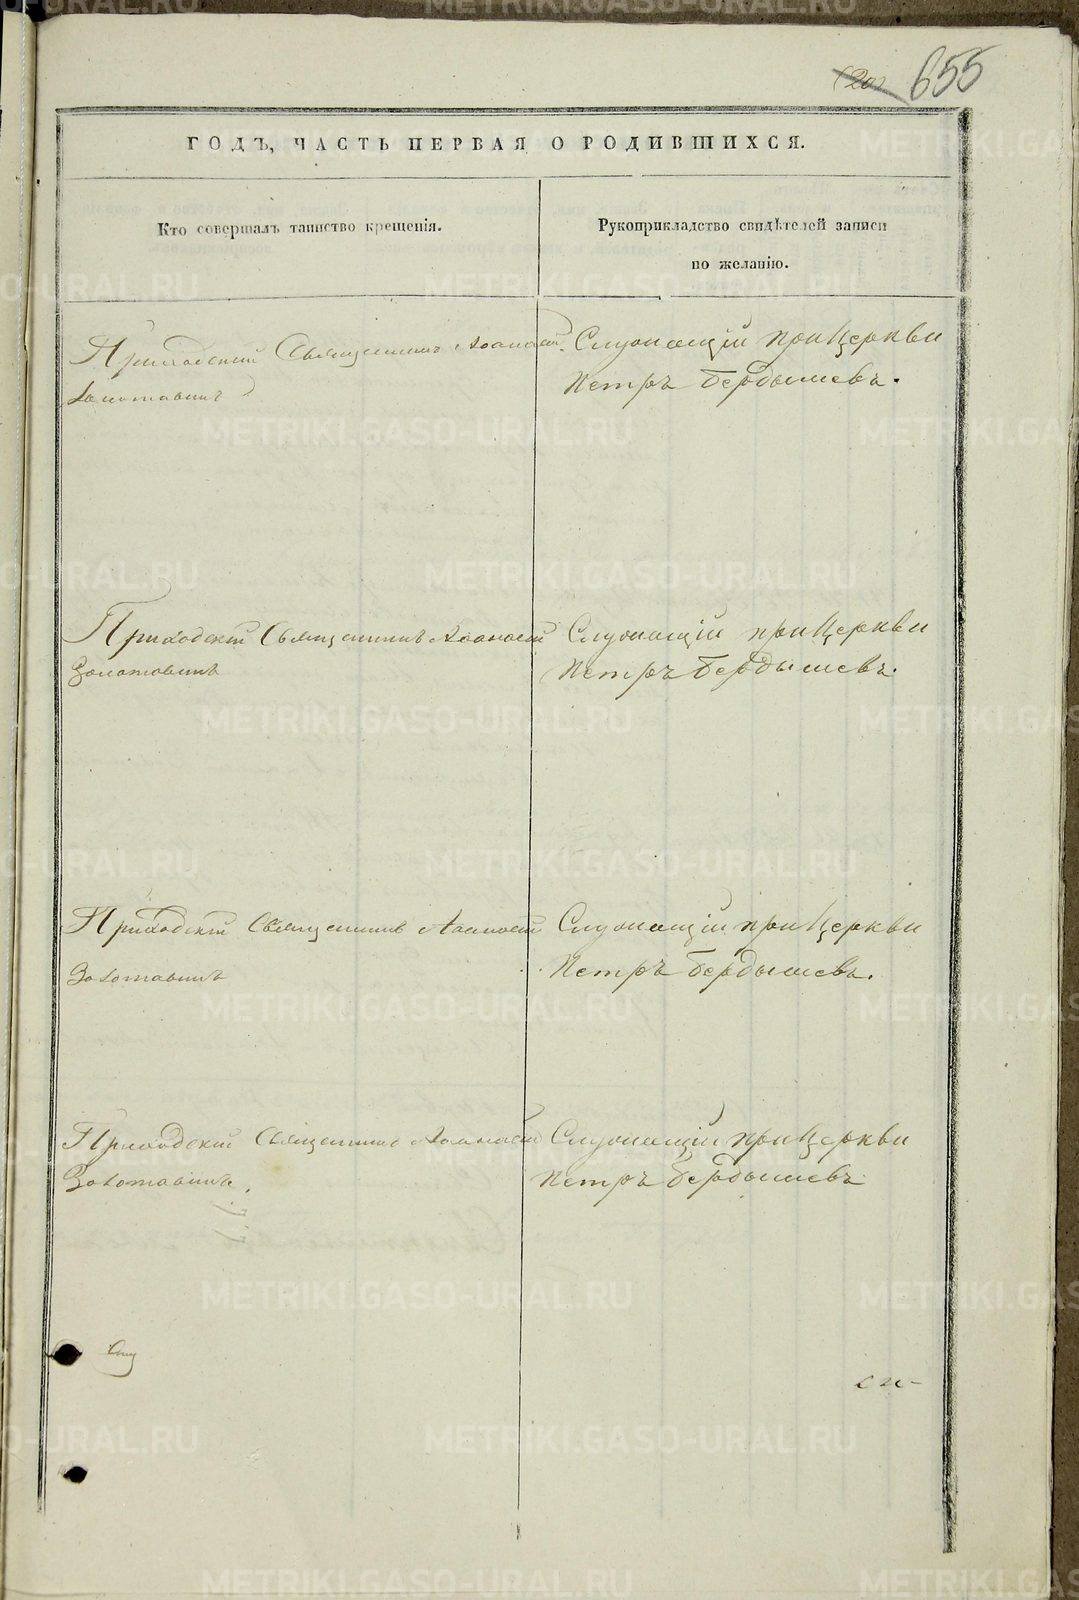 655
ГОДЪ, ЧАСТЬ ПЕРВАЯ О РОДИВШИХСЯ.
Кто совершалъ таинство крещенія.
Рукоприкладство свидѣтелей записи
по желанію.
Приходскій Священникъ Аѳанасій
Золотавинъ
Служащій при Церкви
Петръ Бердышевъ.
Приходскій Священникъ Аѳанасій
Золотавинъ
Служащій при Церкви
Петръ Бердышевъ.
Приходскій Священникъ Аѳанасій
Золотавинъ
Служащій при Церкви
Петръ Бердышевъ.
Приходскій Священникъ Аѳанасій
Золотавинъ.
Служащій при Церкви
Петръ Бердышевъ
METRIKI.GASO-URAL.RU